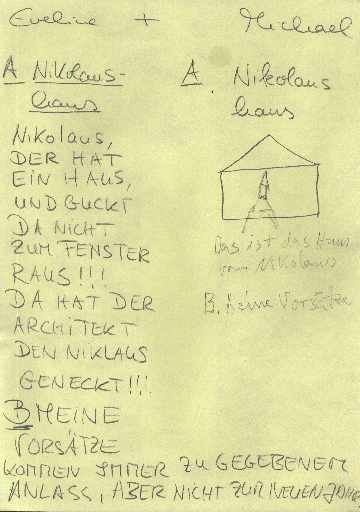 Eveline + Michael
A Nikolaus-
haus
Nikolaus,
DER HAT
EIN HAUS,
UND GUCKT
DA NICHT
ZUM FENSTER
RAUS!!!
DA HAT DER
ARCHITEKT
DEN NIKLAUS
GENECKT!!!
B MEINE
VORSÄTZE
KOMMEN IMMER ZU GEGEBENEM
ANLASS, ABER NICHT ZUM NEUEN JAHR
A. Nikolaus
haus
Das ist das Haus
vom Nikolaus
B. Keine Vorsätze